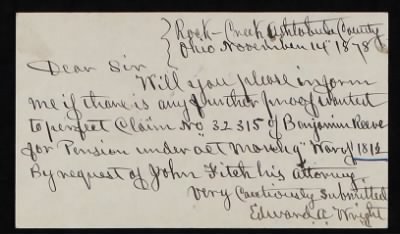 Rock-Creek Ashtabula County
Ohio November 14" 1878
Dear Sir
Will you please inform
me if there is any further proof wanted
to perfect Claim No 32315 of Benjamin Reeve
for Pension under act March 9" War of 1812
By request of John Fitch his attorney.
Very Submitted
Edward A Wright